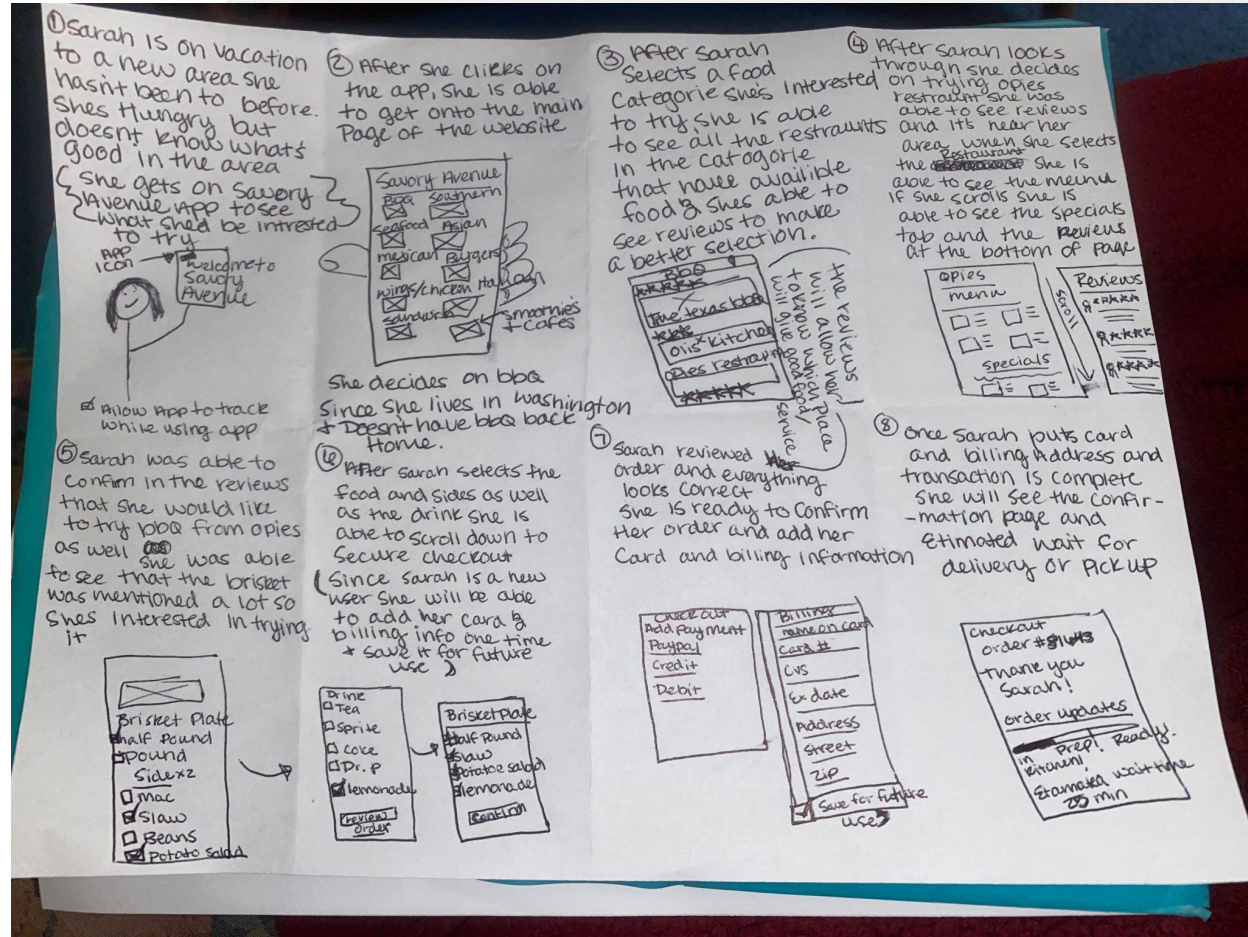 ① Sarah is on vacation
to a new area she
hasn't been to before.
She's Hungry but
doesn't know what's
good in the area
She gets on Savory
Avenue App to see
what she'd be intrested
to try
App
Icon
Welcome to
Savory
Avenue
Allow App to track
while using app
② After she clicks on
the app, she is able
to get onto the main
Page of the website
Savory Avenue
BBQ Southern
Seafood Asian
mexican Burgers
wings/chicken
Sandwich
Smoothies
+ Cafes
She decides on bbQ
Since she lives in Washington
+ Doesn't have bbQ back
Home.
③ After Sarah
Selects a food
Categorie she's Interested
to try, she is able
to see all the restraunts
in the Catogorie
that have availible
food & shes able to
see reviews to make
a better selection.
BbQ
True texas bbq
Olis kitchen
Opies restraunt
the reviews
will allow her
to know which place
will give good food/
service
④ After Sarah looks
through she decides
on trying opies
restraunt she was
able to see reviews
and it's near her
area, when she selects
the Restaurant she is
able to see the menue
if she scrolls she is
able to see the specials
tab and the Reviews
at the bottom of page
Opies
menu
specials
scroll
Reviews
⑤ Sarah was able to
Confim in the reviews
that she would like
to try bbQ from opies
as well she was able
to see that the brisket
was mentioned a lot so
shes interested in trying
it
Brisket Plate
half Pound
Pound
Sidex2
mac
Slaw
Beans
Potato Salad
⑥ After Sarah selects the
food and sides as well
as the drink she is
able to scroll down to
Secure checkout
(Since Sarah is a new
user she will be able
to add her card &
billing info one time
+ save it for future
use)
Drink
Tea
Sprite
Coke
Dr. P
lemonade
review
order
Brisket Plate
Half Pound
Slaw
Potatoe salad
lemonade
Confirm
⑦ Sarah reviewed
order and everything
looks correct
She is ready to Confirm
Her order and add her
Card and billing Information
Checkout
Add Payment
Paypal
Credit
Debit
Billing
name on card
Card #
Cvs
Ex date
Address
Street
Zip
Save for future
use
⑧ Once Sarah puts card
and billing Address and
transaction is complete
she will see the confir-
-mation page and
Etimated wait for
delivery or Pick up
Checkout
order #
Thank you
Sarah!
order updates
in Prep! Ready.
kitchen!
Etamated wait time
25 min